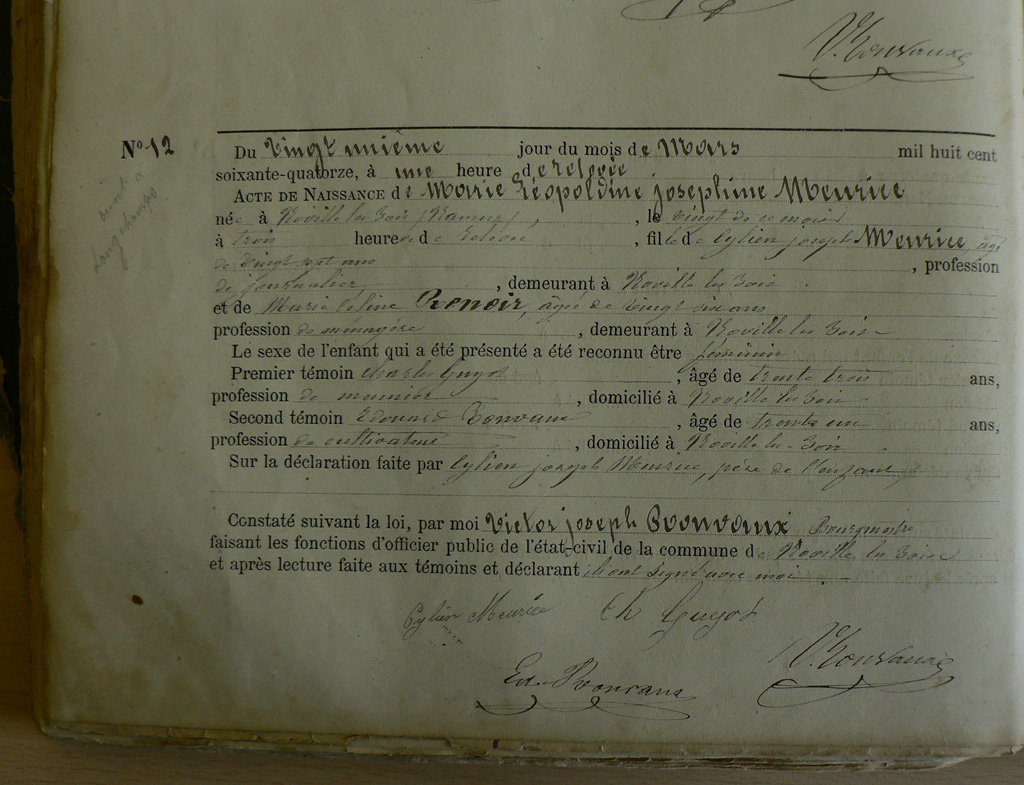 V. Bonvaux
N° 12
Du vingt unième jour du mois de Mars mil huit cent
soixante-quatorze, à une heure de relevée
ACTE DE NAISSANCE de Marie Léopoldine Josephine Meurice
née à Noville les Bois (Namur), le vingt de ce mois
à trois heures de relevée, fille de Cylien joseph Meurice âgé
de vingt sept ans, profession
de journalier, demeurant à Noville les Bois
et de Marie Céline Renoir, âgée de vingt six ans
profession de ménagère, demeurant à Noville les Bois
Le sexe de l'enfant qui a été présenté a été reconnu être féminin
Premier témoin Charles Guyot, âgé de trente trois ans,
profession de meunier, domicilié à Noville les Bois
Second témoin Edouard Bonvaux, âgé de trente un ans,
profession de cultivateur, domicilié à Noville les Bois
Sur la déclaration faite par Cylien joseph Meurice, père de l'enfant
Constaté suivant la loi, par moi Victor joseph Bonvaux Bourgmestre
faisant les fonctions d'officier public de l'état-civil de la commune de Noville les Bois
et après lecture faite aux témoins et déclarant ils ont signé avec moi
Cylien Meurice Ch Guyot
Ed. Bonvaux V. Bonvaux
Longchamps